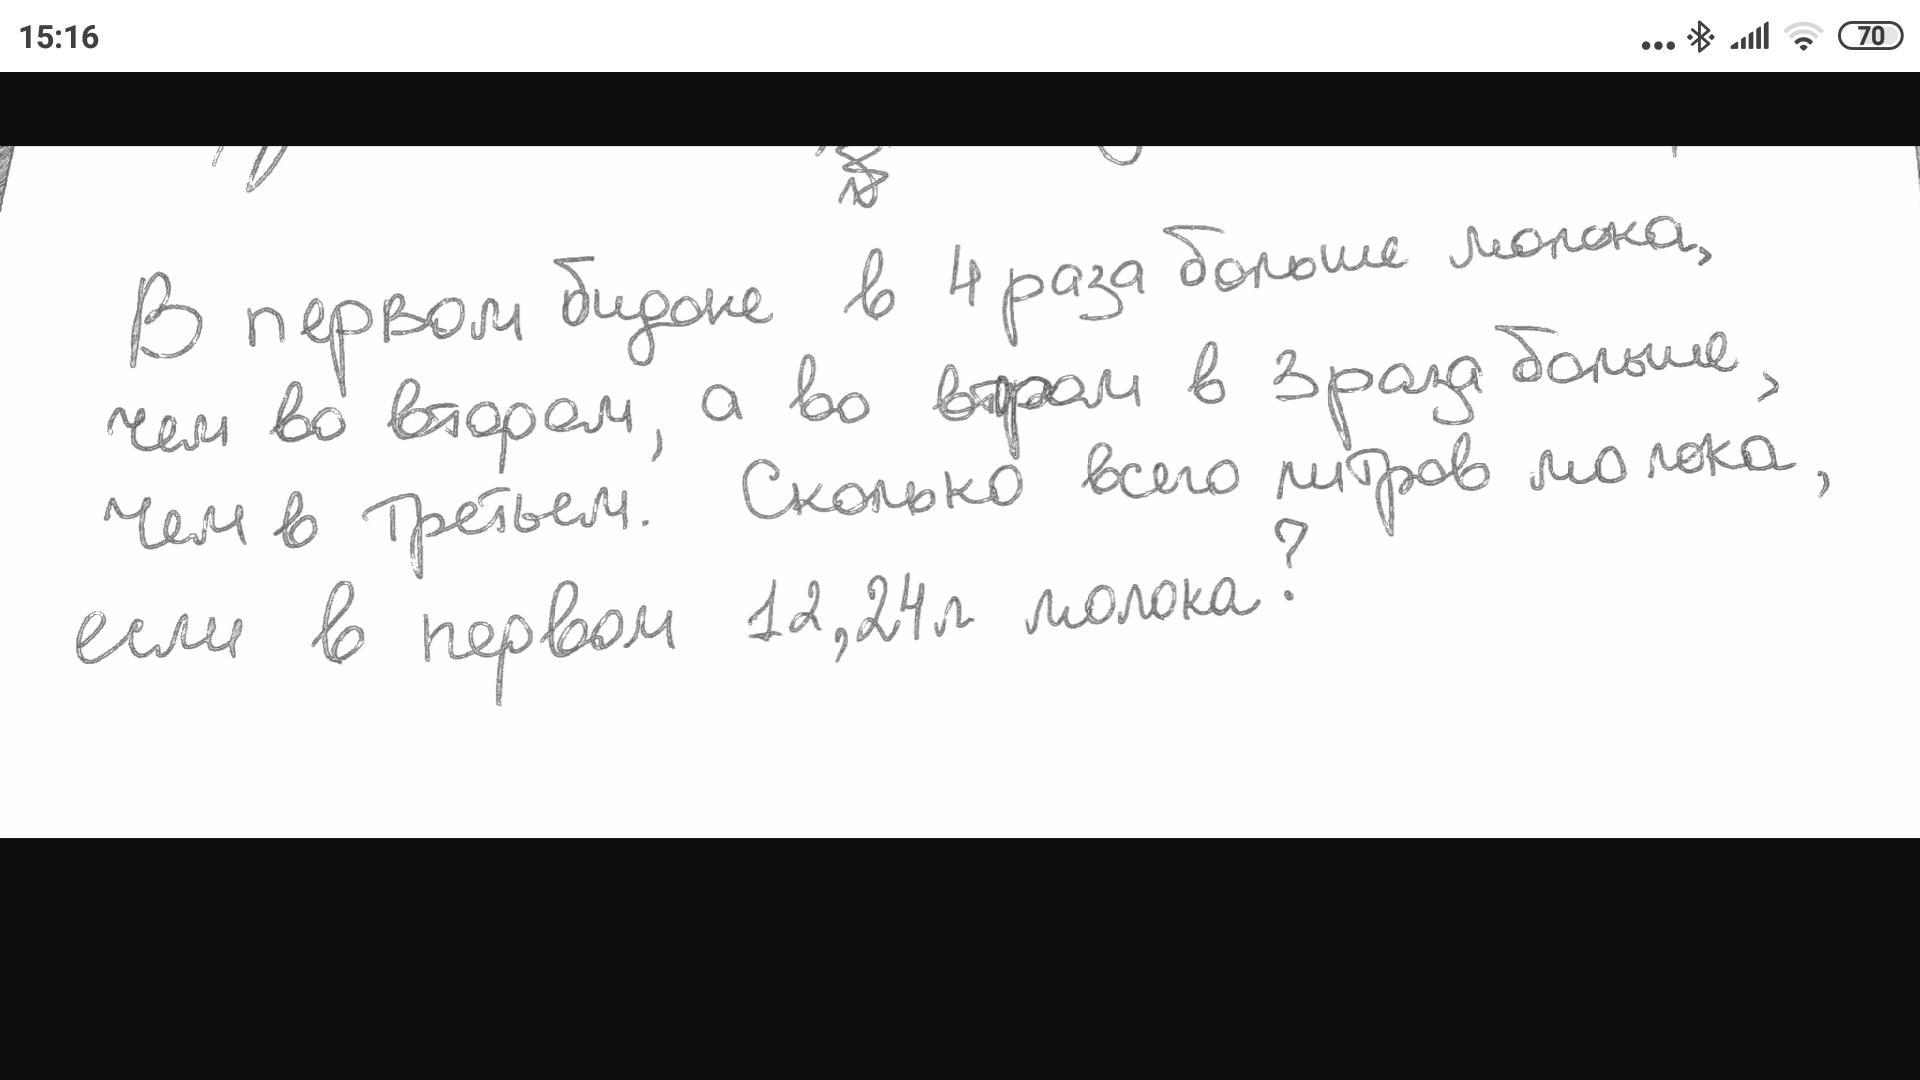 15:16
70
В первом бидоне в 4 раза больше молока,
чем во втором, а во втором в 3 раза больше,
чем в третьем. Сколько всего литров молока,
если в первом 12,24л молока?